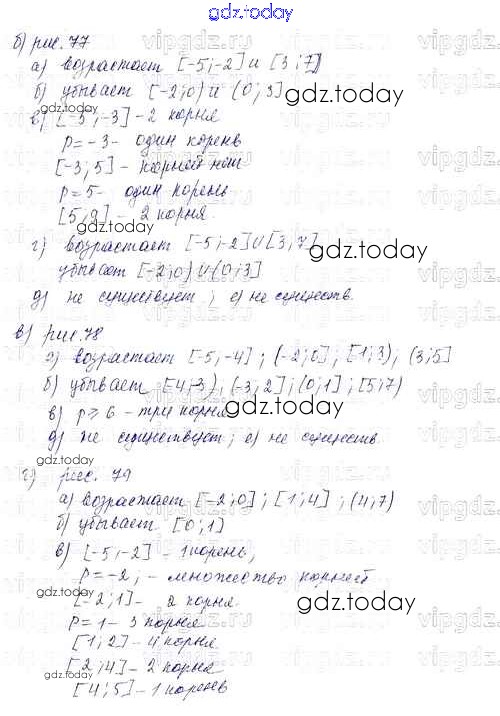 gdz.today
б) рис. 77
а) возрастает [-5;-2] и [3;7]
б) убывает [-2;0) и (0;3]
gdz.today
в) [-5;-3] - 2 корня
p=-3 - один корень
[-3;5] - корней нет
p=5 - один корень
[5;9] - 2 корня
г) возрастает [-5;-2]∪[3;7]
gdz.today
убывает [-2;0)∪(0;3]
д) не существует; е) не существ.
в) рис. 78
а) возрастает [-5,-4]; (-2;0]; [1;3); (3;5]
б) убывает [-4;-3), (-3;2]; (0;1]; [5;7)
в) p ⩾ 6 - три корня
gdz.today
д) не существует; е) не существ.
gdz.today
г) рис. 79
а) возрастает [-2;0]; [1;4]; (4;7)
б) убывает [0;1]
в) [-5;-2] - 1 корень;
p=-2; - множество корней
[-2;1] - 2 корня
gdz.today
p=1 - 3 корня
[1;2] - 4 корня
[2;4] - 2 корня
gdz.today
[4;5] - 1 корень